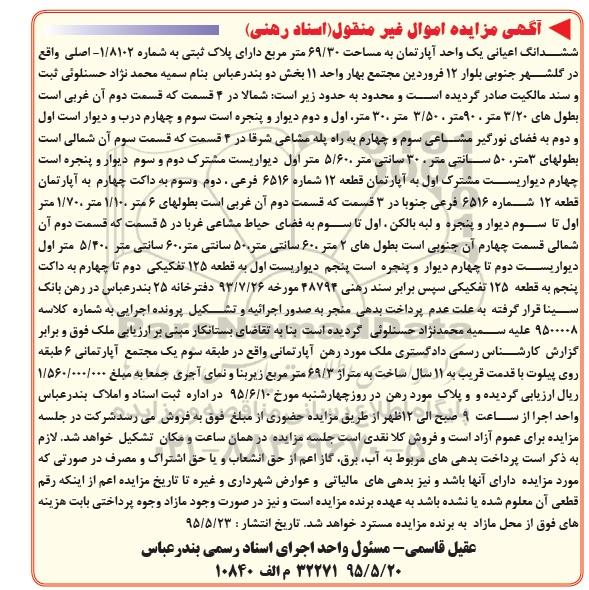 آگهی مزایده اموال غیر منقول(اسناد رهنی)
ششدانگ اعیانی یک واحد آپارتمان به مساحت ۶۹/۳۰ متر مربع دارای پلاک ثبتی به شماره ۱/۸۱۰۲- اصلی واقع
در گلشهر جنوبی بلوار ۱۲ فروردین مجتمع بهار واحد ۱۱ بخش دو بندرعباس بنام سمیه محمد نژاد حسنلوئی ثبت
و سند مالکیت صادر گردیده است و محدود به حدود زیر است: شمالا در ۴ قسمت که قسمت دوم آن غربی است
بطول های ۳/۲۰ متر ، ۹۰متر ، ۳/۵۰ متر ،۳۰ متر، اول و دوم دیوار و پنجره است سوم و چهارم درب و دیوار است اول
و دوم به فضای نورگیر مشاعی سوم و چهارم به راه پله مشاعی شرقا در ۴ قسمت که قسمت سوم آن شمالی است
بطولهای ۳متر، ۵۰ سانتی متر ، ۳۰ سانتی متر ، ۵/۶۰ متر اول دیواریست مشترک دوم و سوم دیوار و پنجره است
چهارم دیواریست مشترک اول به آپارتمان قطعه ۱۲ شماره ۶۵۱۶ فرعی ، دوم وسوم به داکت چهارم به آپارتمان
قطعه ۱۲ شماره ۶۵۱۶ فرعی جنوبا در ۳ قسمت که قسمت دوم آن غربی است بطولهای ۶ متر ،۱/۱۰ متر ،۱/۷۰ متر
اول تا سوم دیوار و پنجره و لبه بالکن ، اول تا سوم به فضای حیاط مشاعی غربا در ۵ قسمت که قسمت دوم آن
شمالی قسمت چهارم آن جنوبی است بطول های ۲ متر ،۶۰ سانتی متر،۵۰ سانتی متر،۶۰ سانتی متر ،۵/۴۰ متر اول
دیواریست دوم تا چهارم دیوار و پنجره است پنجم دیواریست اول به قطعه ۱۲۵ تفکیکی دوم تا چهارم به داکت
پنجم به قطعه ۱۲۵ تفکیکی سپس برابر سند رهنی ۴۸۷۹۴ مورخه ۹۳/۷/۲۶ دفترخانه ۲۵ بندرعباس در رهن بانک
سینا قرار گرفته به علت عدم پرداخت بدهی منجر به صدور اجرائیه و تشکیل پرونده اجرایی به شماره کلاسه
۹۵۰۰۰۰۸ علیه سمیه محمدنژاد حسنلوئی گردیده است بنا به تقاضای بستانکار مبنی بر ارزیابی ملک فوق و برابر
گزارش کارشناس رسمی دادگستری ملک مورد رهن آپارتمانی واقع در طبقه سوم یک مجتمع آپارتمانی ۶ طبقه
روی پیلوت با قدمت قریب به ۱۱ سال ساخت به متراژ ۶۹/۳ متر مربع زیربنا و نمای آجری جمعا به مبلغ ۱/۵۶۰/۰۰۰/۰۰۰
ریال ارزیابی گردیده و و پلاک مورد رهن در روزچهارشنبه مورخ ۹۵/۶/۱۰ در اداره ثبت اسناد و املاک بندرعباس
واحد اجرا از ساعت ۹ صبح الی ۱۲ظهر از طریق مزایده حضوری از مبلغ فوق به فروش می رسدشرکت در جلسه
مزایده برای عموم آزاد است و فروش کلا نقدی است جلسه مزایده در همان ساعت و مکان تشکیل خواهد شد. لازم
به ذکر است پرداخت بدهی های مربوط به آب، برق، گاز اعم از حق انشعاب و یا حق اشتراک و مصرف در صورتی که
مورد مزایده دارای آنها باشد و نیز بدهی های مالیاتی و عوارض شهرداری و غیره تا تاریخ مزایده اعم از اینکه رقم
قطعی آن معلوم شده یا نشده باشد به عهده برنده مزایده است و نیز در صورت وجود مازاد وجوه پرداختی بابت هزینه
های فوق از محل مازاد به برنده مزایده مسترد خواهد شد. تاریخ انتشار : ۹۵/۵/۲۳
عقیل قاسمی- مسئول واحد اجرای اسناد رسمی بندرعباس
۹۵/۵/۲۰ ۳۲۲۷۱ م الف ۱۰۸۴۰